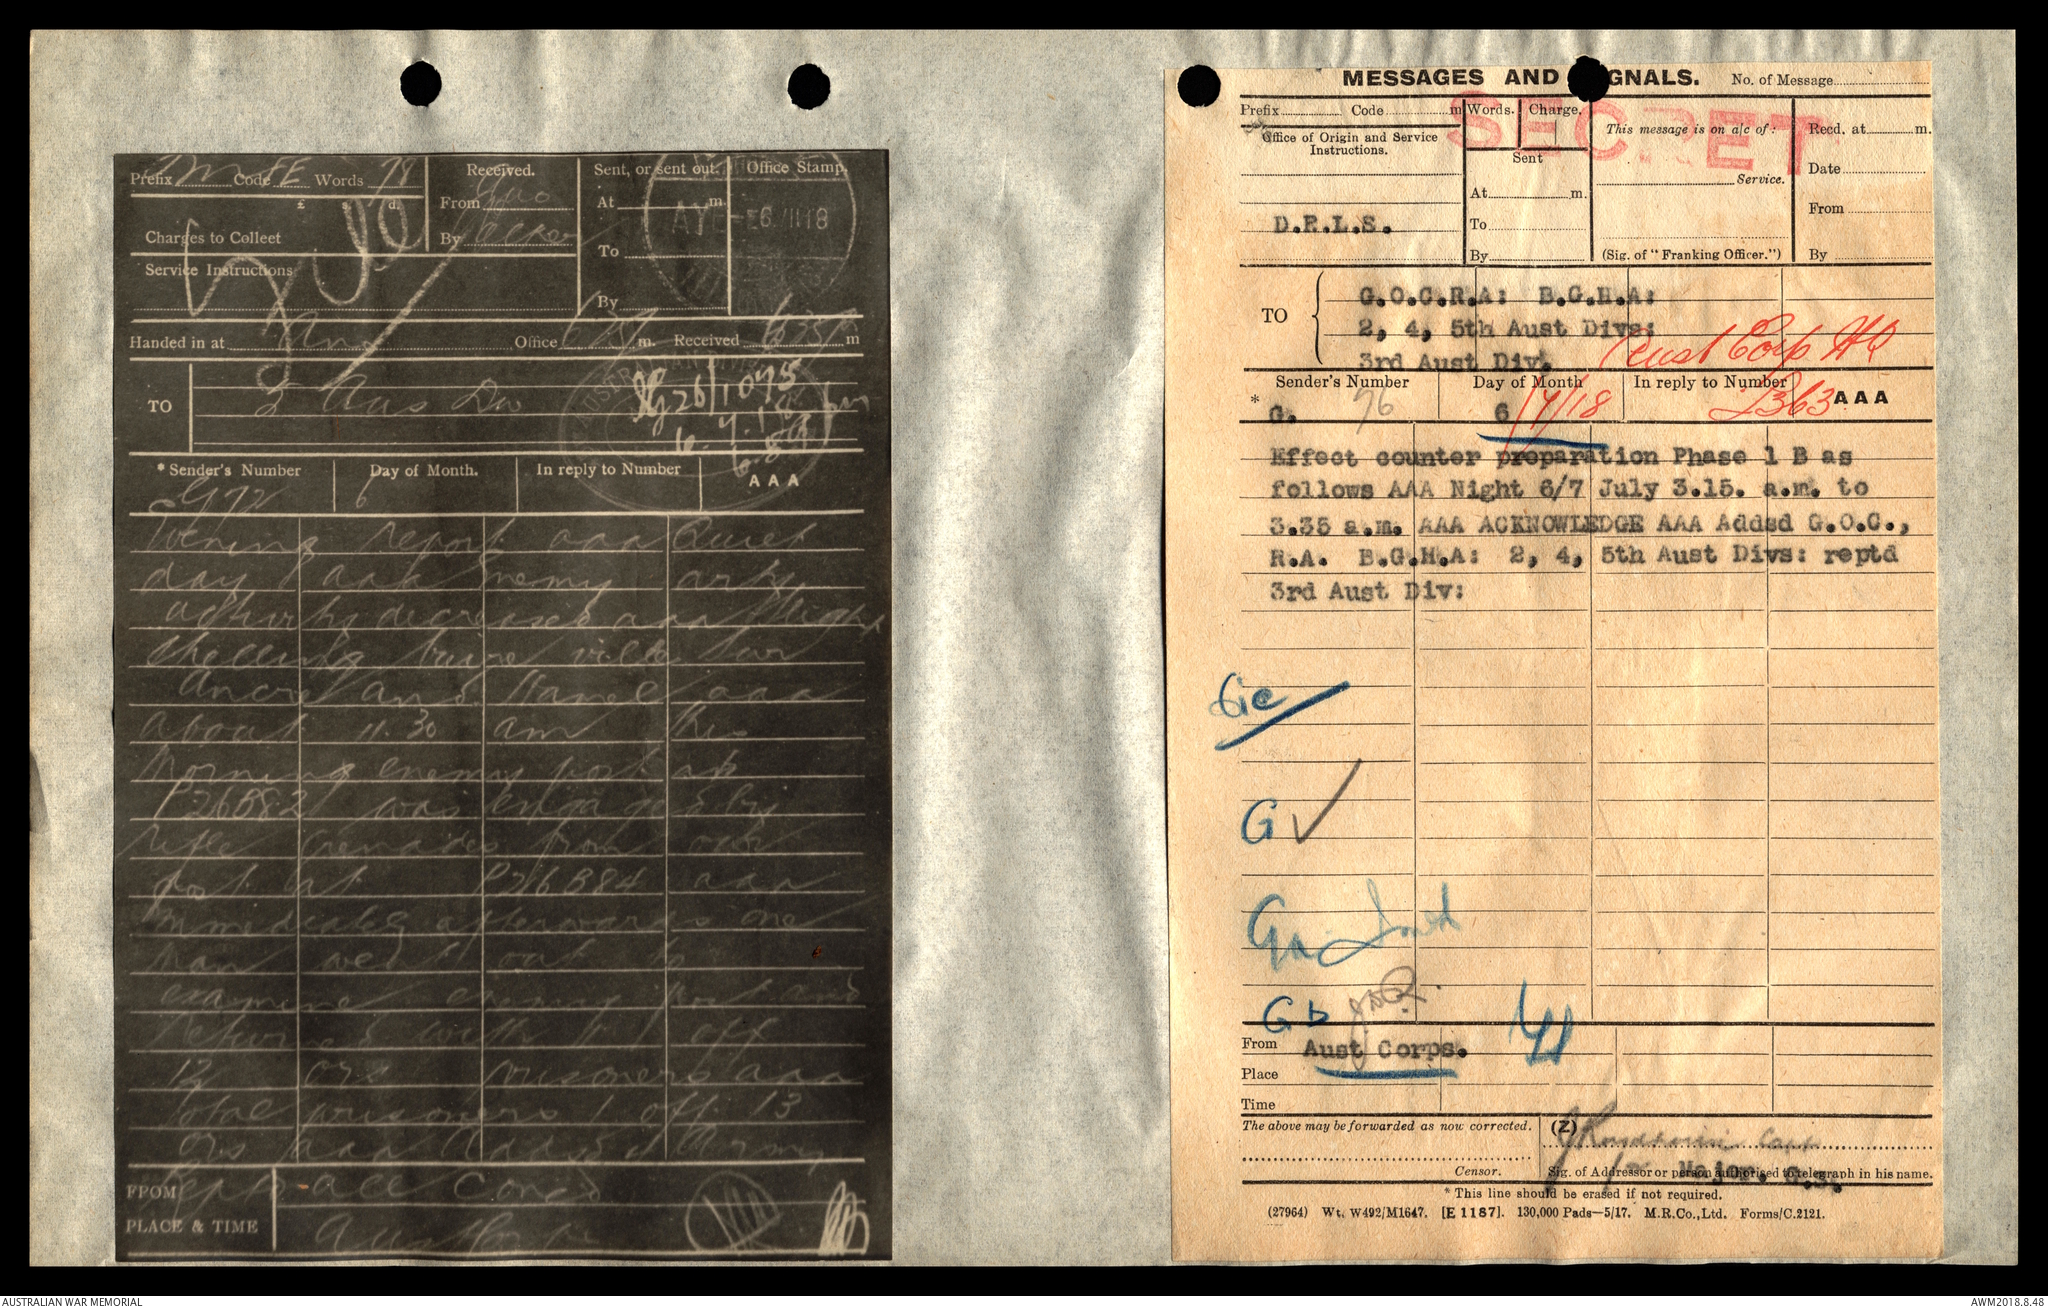 Prefix M Code FE Words 78
£ s. d.
Charges to Collect
Service Instructions
Received.
From
By
Sent, or sent out.
At m
To
By
Office Stamp.
6 VII 18
Handed in at Office m. Received m
TO 3 Aus Div
* Sender's Number Day of Month. In reply to Number AAA
G 72 6
Evening report aaa Quiet
day aaa Enemy arty
activity decreased aaa Slight
shelling buire ville sur
Ancre and Hamel aaa
about 11.30 am this
Morning enemy post at
P26B82 was engaged by
rifle grenades from our
post at P26B84 aaa
immediately afterwards one
man went out to
examine enemy post and
returned with 1 off
12 ors prisoners aaa
Total prisoners 1 off. 13
Ors aaa Addsd
FROM reptd all concd
PLACE & TIME Aust Corps
MESSAGES AND GNALS. No. of Message
Prefix Code m
Words. Charge.
Office of Origin and Service
Instructions.
D.R.L.S.
Sent
At m.
To
By
This message is on a/c of:
Service.
(Sig. of "Franking Officer.")
Recd. at m.
Date
From
By
SECRET
TO
G.O.C.R.A: B.G.H.A:
2, 4, 5th Aust Divs:
3rd Aust Div.
Aust Corp HQ
Sender's Number Day of Month In reply to Number AAA
* G. 76 6/7/18
Effect counter preparation Phase 1 B as
follows AAA Night 6/7 July 3.15. a.m. to
3.35 a.m. AAA ACKNOWLEDGE AAA Addsd G.O.C.,
R.A. B.G.H.A: 2, 4, 5th Aust Divs: reptd
3rd Aust Div:
G
Gb
From Aust Corps.
Place
Time
The above may be forwarded as now corrected.
(Z)
Censor.
Sig. of Addressor or person authorised to telegraph in his name.
Major. G.S.
* This line should be erased if not required.
(27964) Wt. W492/M1647. [E 1187]. 130,000 Pads—5/17. M.R.Co., Ltd. Forms/C.2121.
AUSTRALIAN WAR MEMORIAL
AWM2018.8.48